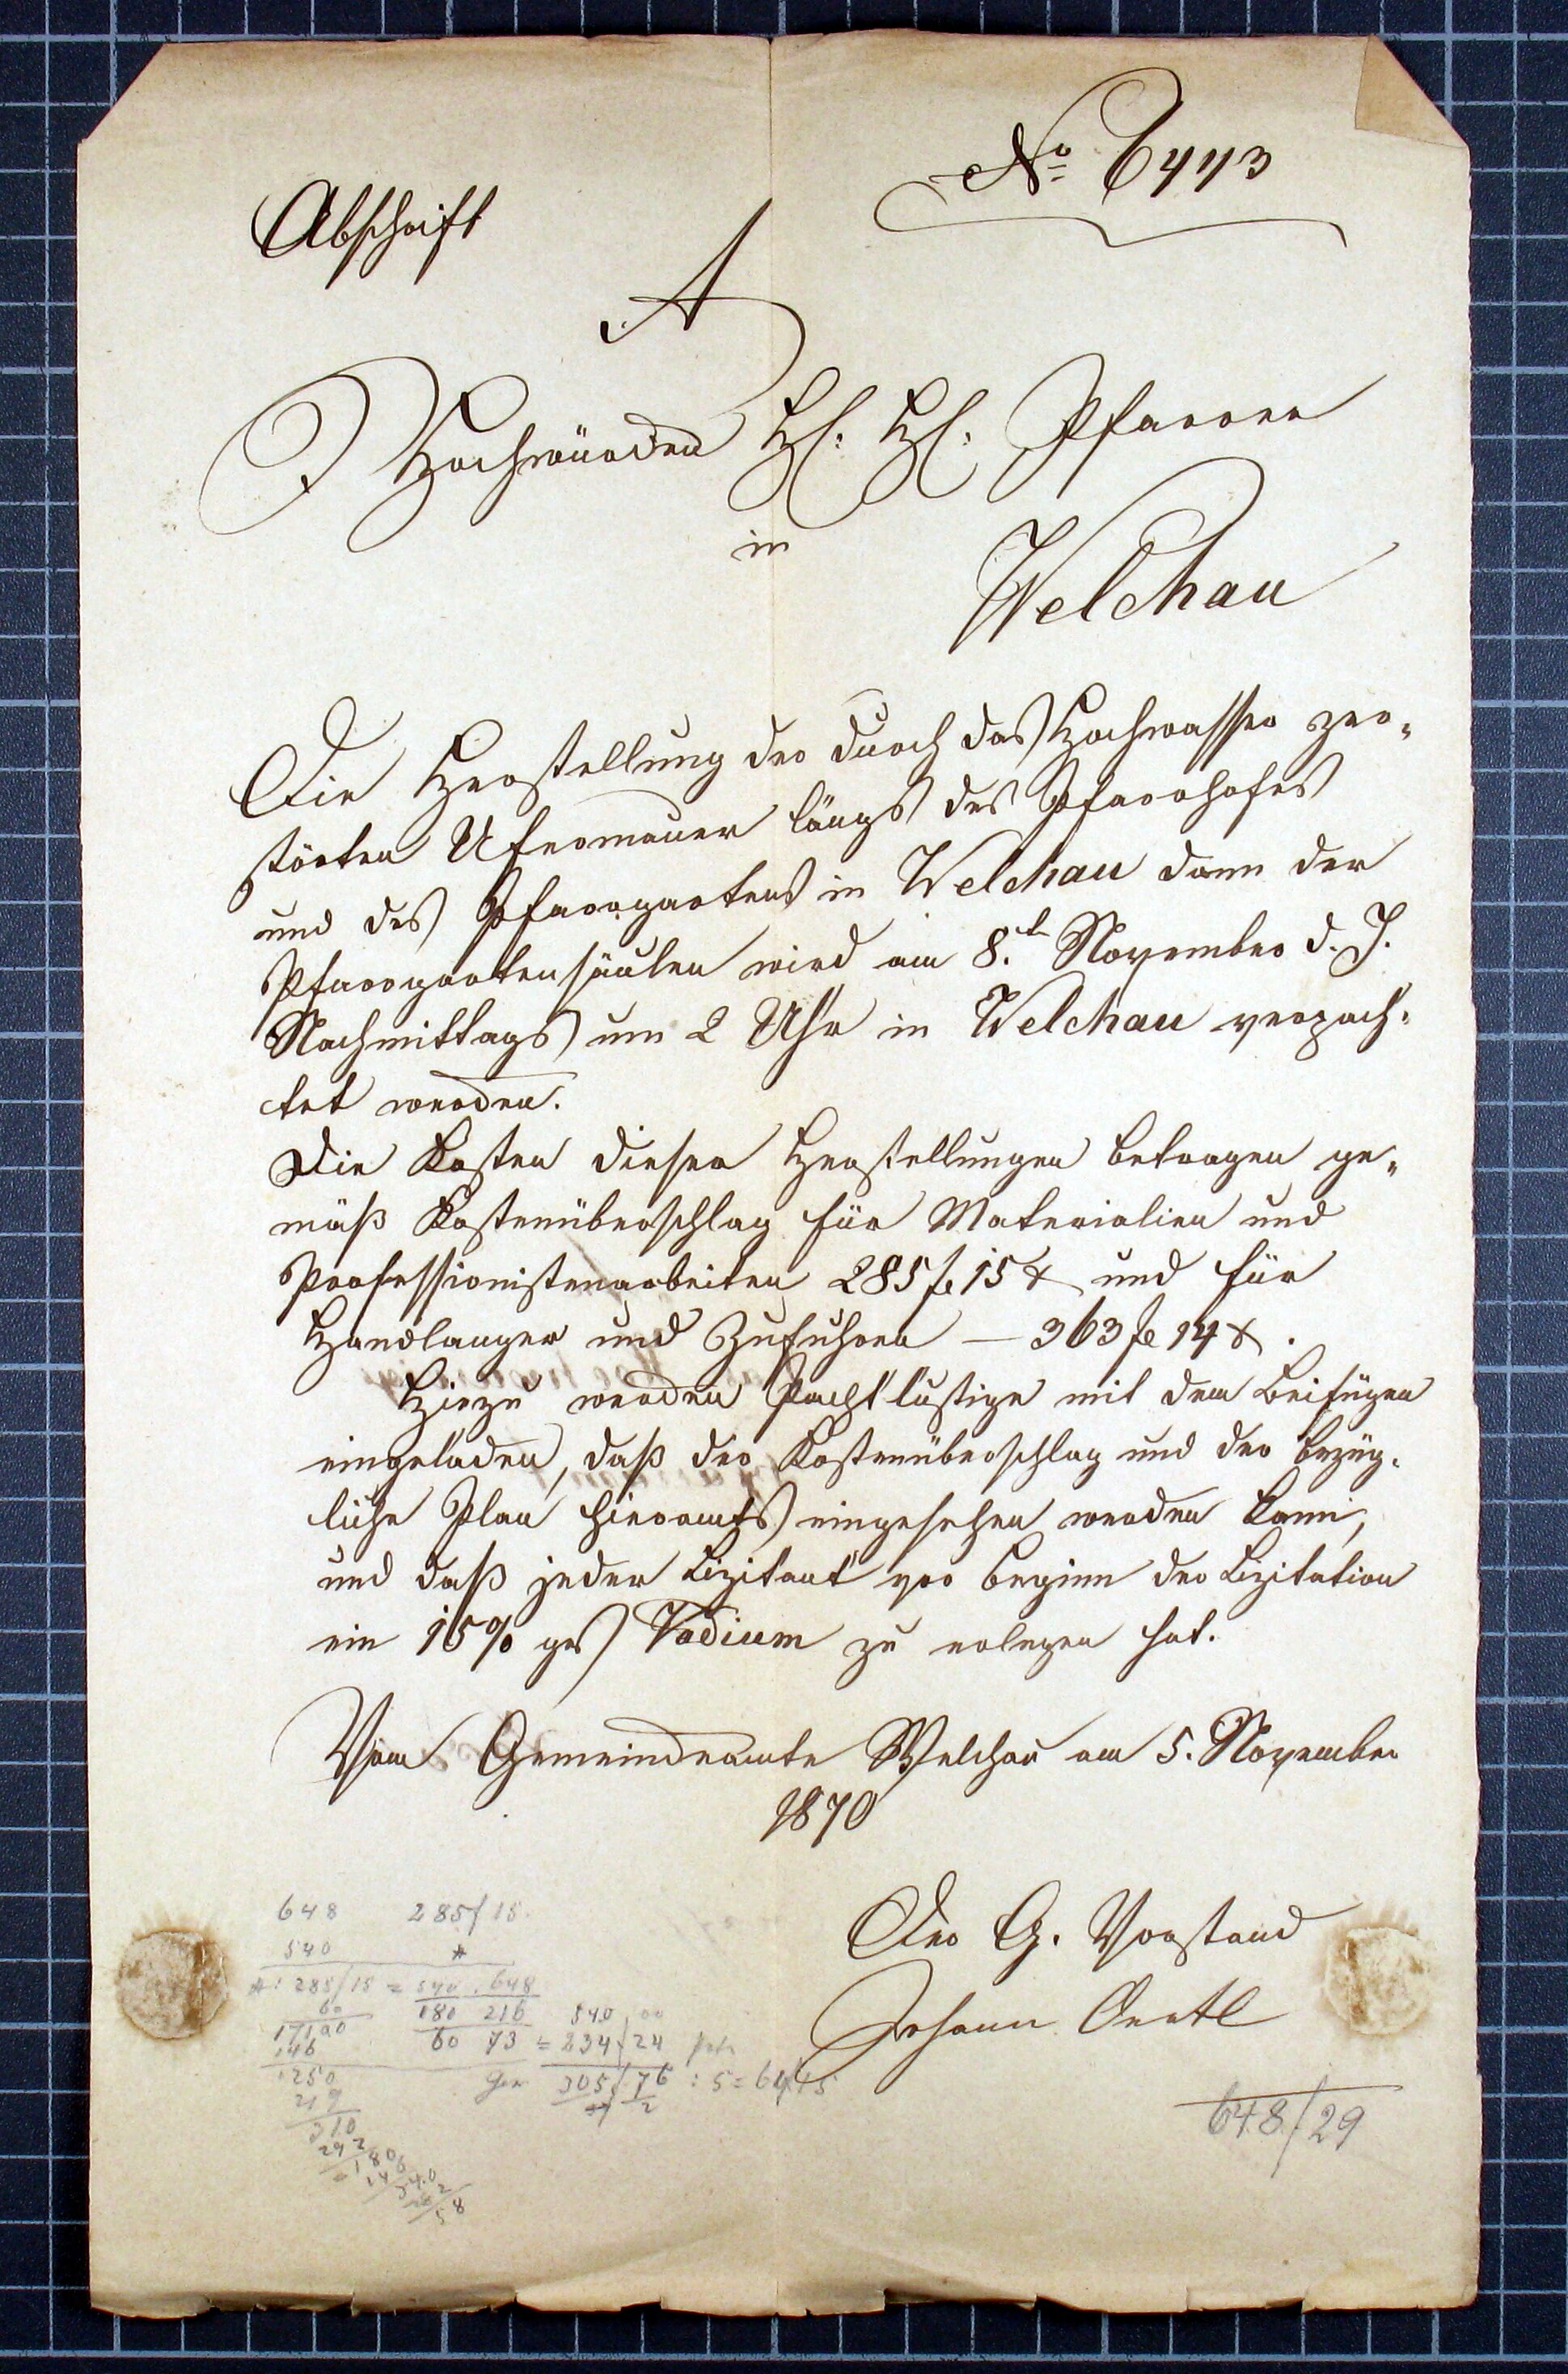 No 6443
Abschrift
A
Hochwürden H: H: Pfarrer
in
Welchau
Die Herstellung der durch das Hochwasser zer-
störten Ufermauer längs des Pfarrhofes
und des Pfarrgartens in Welchau dann der
Pfarrgartensäulen wird am 8.t November d. J.
Nachmittags um 2 Uhr in Welchau verpach-
tet werden.
Die Kosten dieser Herstellungen betragen ge-
mäß Kostenüberschlag für Materialien und
Professionistenarbeiten 285 f 15 x und für
Handlanger und Zufuhren — 363 f 14 x.
Hiezu werden Pachtlustige mit dem Beifügen
eingeladen, daß der Kostenüberschlag und der bezüg-
liche Plan hieramts eingesehen werden kann,
und daß jeder Lizitant vor Beginn der Lizitation
ein 15% ges Vadium zu erlegen hat.
Vom Gemeindeamte Welchau am 5. November
1870
Der G. Vorstand
Johann Oertl
648 285f 15
540 *
*: 285/15 = 540 . 648
60 180 216 540 00
17100 60 73 = 234 24
146 305 76 : 5 = 61 15
250
219
310
292
180
648/29